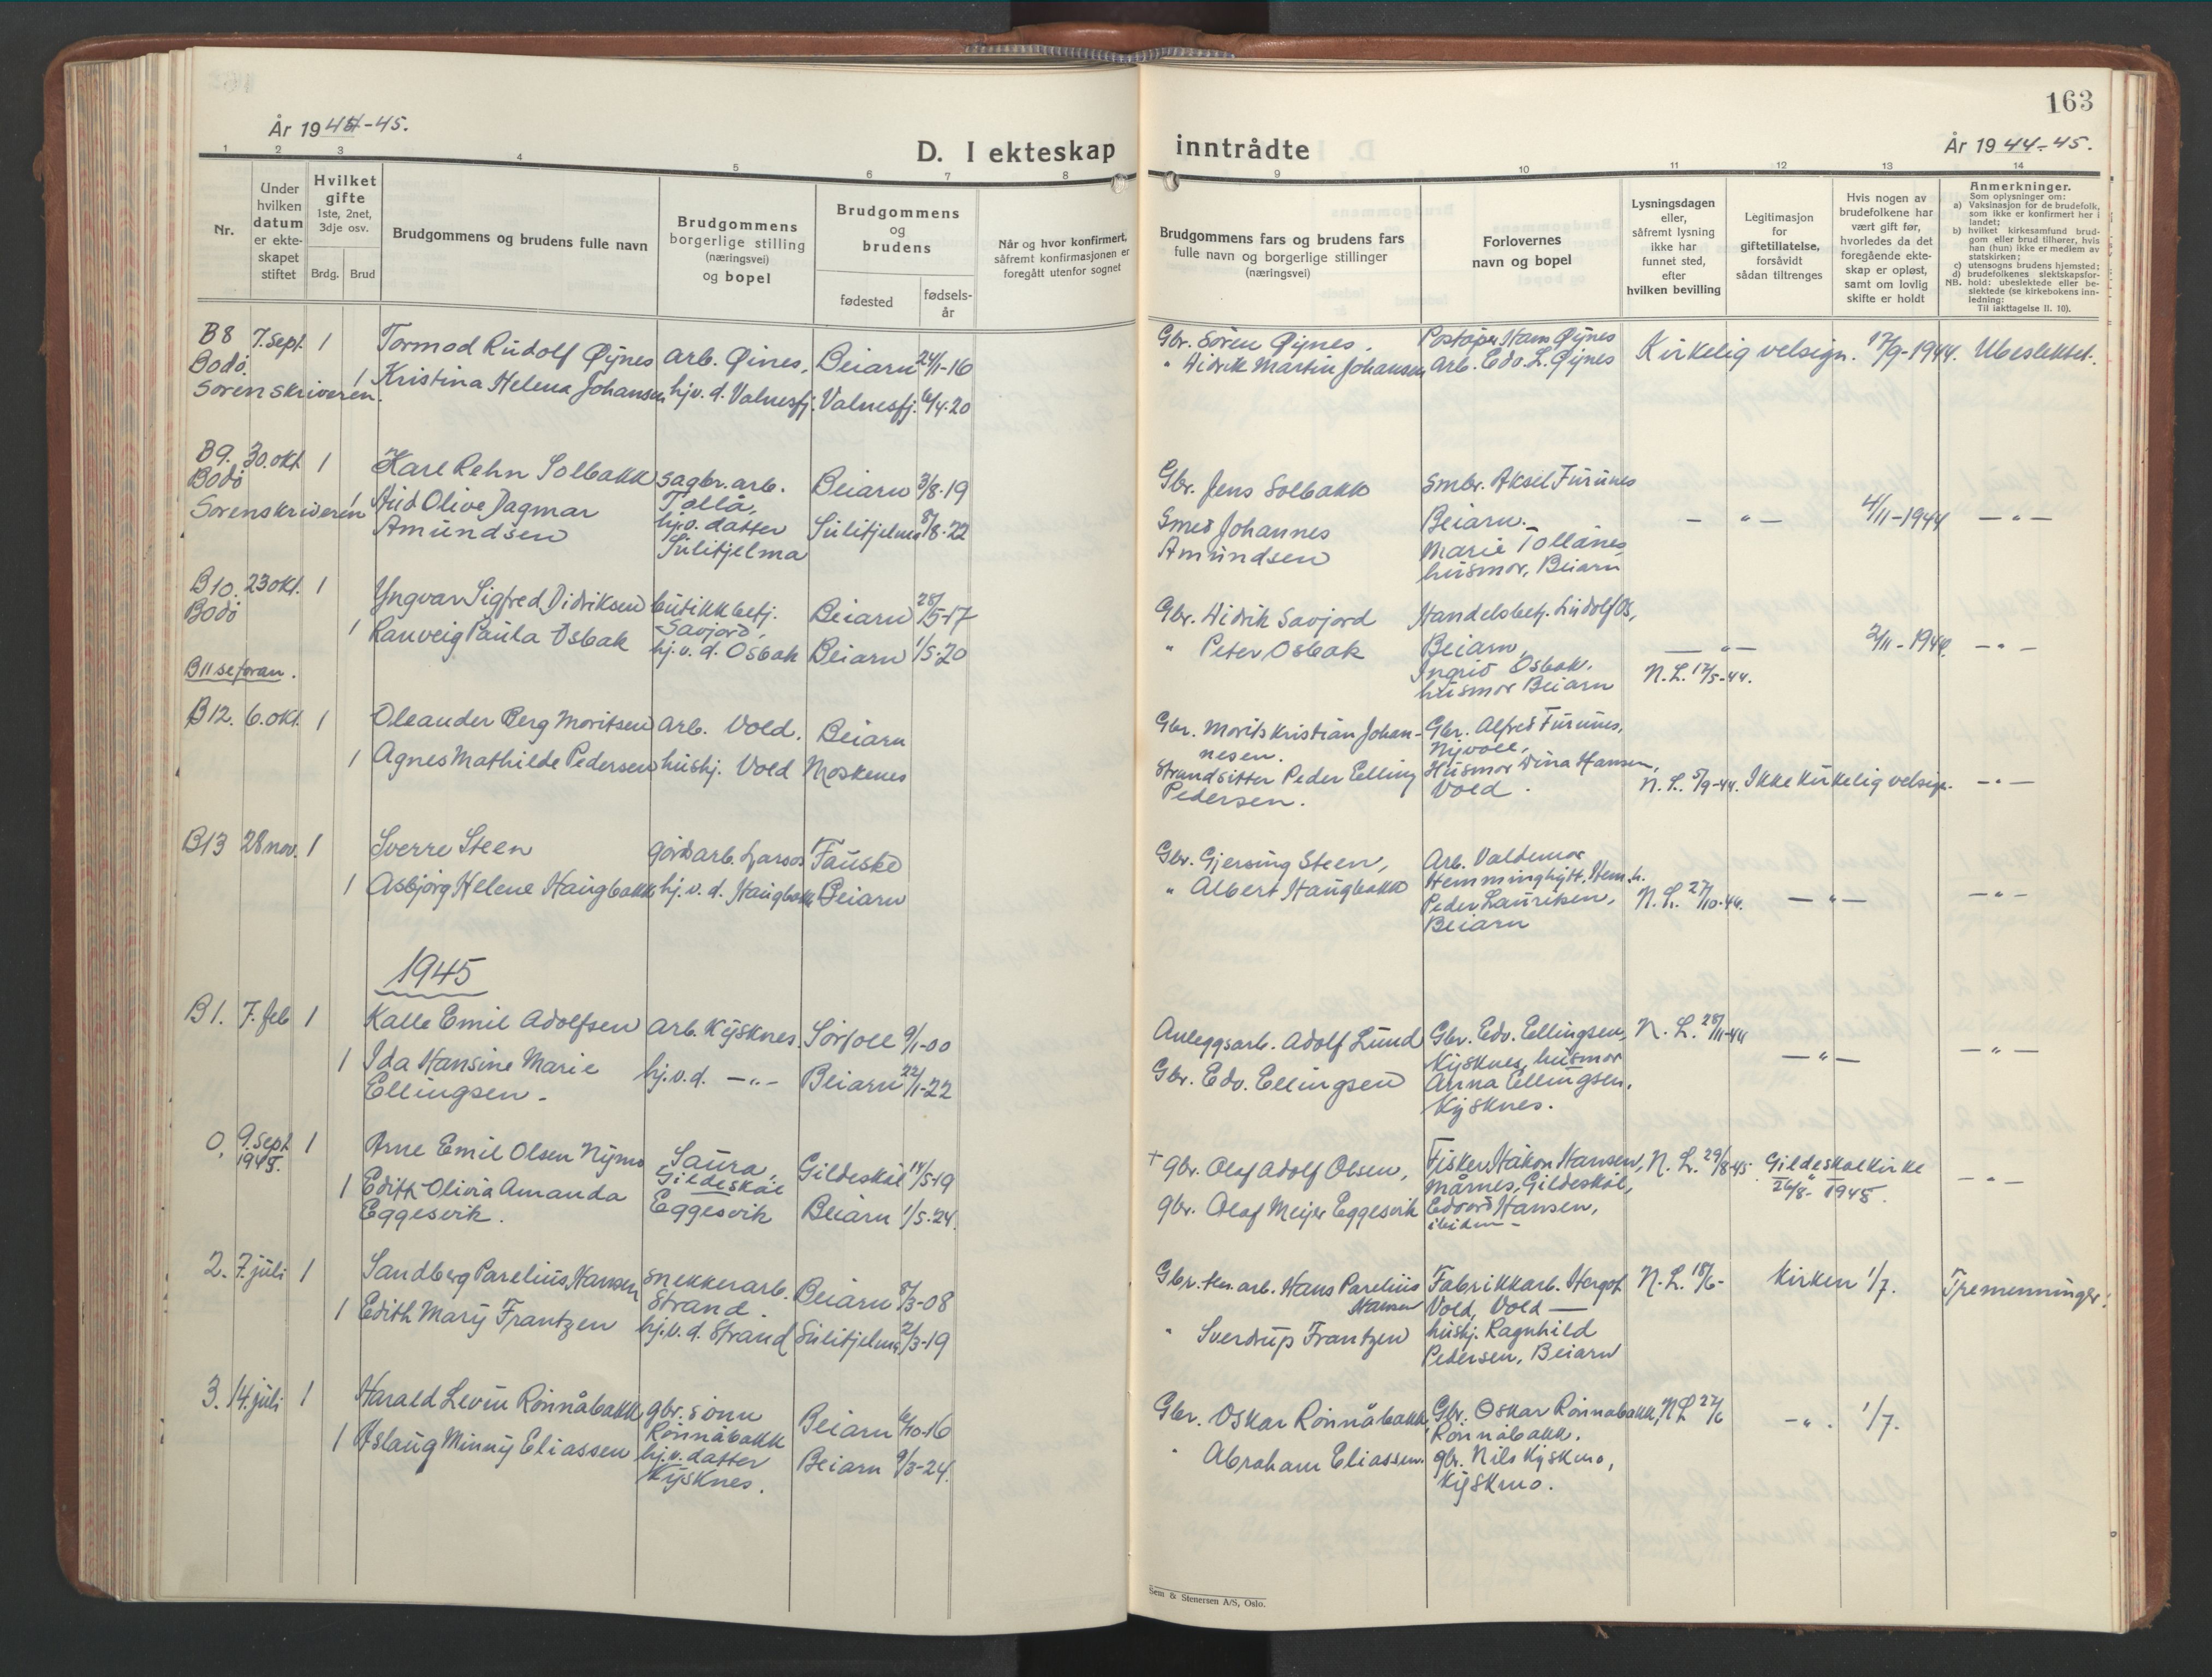 163
År 1944-45.
D. I ekteskap inntrådte
År 1944-45.
1 2 3 4 5 6 7 8 9 10 11 12 13 14
Nr.
Under hvilken datum er ekteskapet stiftet
Hvilket gifte
1ste, 2net, 3dje osv.
Brdg. Brud
Brudgommens og brudens fulle navn
Brudgommens borgerlige stilling (næringsvei) og bopel
Brudgommens og brudens
fødested
fødselsår
Når og hvor konfirmert, såfremt konfirmasjonen er foregått utenfor sognet
Brudgommens fars og brudens fars fulle navn og borgerlige stillinger (næringsvei)
Forlovernes navn og bopel
Lysningsdagen eller, såfremt lysning ikke har funnet sted, efter hvilken bevilling
Legitimasjon for giftetillatelse, forsåvidt sådan tiltrenges
Hvis nogen av brudefolkene har vært gift før, hvorledes da det foregående ekteskap er opløst, samt om lovlig skifte er holdt
Anmerkninger.
Som oplysninger om:
a) Vaksinasjon for de brudefolk, som ikke er konfirmert her i landet;
b) hvilket kirkesamfund brudgom eller brud tilhører, hvis han (hun) ikke er medlem av statskirken;
c) utensogns brudens hjemsted;
d) brudefolkenes slektskapsforhold: ubeslektede eller beslektede (se kirkebokens innledning:
NB. Til iakttagelse II. 10).
B8 7. sept. 1 Tormod Rudolf Øynes arb. Øines, Beiarn 24/11-16 Gbr. Sören Øynes. Poståpn. Hans Øynes Kirkelig velsign. 17/9-1944. Ubeslektet.
Bodö. Sorenskriveren. 1 Kristina Helena Johansen hjv. d. Valnesfj. Valnesfj. 6/4-20 " Didrik Martin Johansen Arb. Edv. L. Øynes
B9. 30. okt 1 Karl Rehn Solbakk sagbr. arb. Tollå, Beiarn 3/8-19 Gbr. Jens Solbakk Smbr. Aksel Furunes Beiarn. - " - 4/11-1944 - " -
Bodö Sorenskriveren 1 Aud Olive Dagmar Amundsen hj.v. datter Sulitjelma Sulitjelma 8/8-22 Smed Johannes Amundsen Marie Tollånes husmor, Beiarn
B10. 23 okt. 1 Yngvar Sigfred Didriksen butikkbetj. Savjord, Beiarn 28/5-17 Gbr. Didrik Savjord Handelsbetj. Ludolf Os, Beiarn, - " - 2/11-1944. - " -
Bodö 1 Ranveig Paula Osbak hj.v. d. Osbak Beiarn 1/5-20 " Peter Osbak Ingrid Osbak. husmor Beiarn
B11 se foran. N.L. 17/5-44.
B12. 6. okt. 1 Oleander Berg Moritsen arb. Vold. Beiarn Gbr. Morits Kristian Johannesen. Gbr. Alfred Furunes, Nyvoll,
1 Agnes Mathilde Pedersen hushj. Vold Moskenes Strandsitter Peder Elling Pedersen. Husmor Dina Hansen, Vold. N.L. 5/9-44. Ikke kirkelig velsign. - " -
B13 28 nov. 1 Sverre Steen gårdsarb. Larsos Fauske Gbr. Gjersing Steen, Arb. Valdemar Hemminghytt, Hem.h.
1 Asbjörg Helene Haugbakk hj.v. d. Haugbakk Beiarn " Albert Haugbakk Peder Lauritsen, Beiarn N.L. 27/10-44. - " - - " -
1945
B1. 7. feb 1 Kalle Emil Adolfsen arb. Kjÿsknes. Sörfoll 9/1-00 Anleggsarb. Adolf Lund Gbr. Edv. Ellingsen, Kjÿsknes, husmor N.L. 28/11-44 - " - - " -
1 Ida Hansine Marie Ellingsen. hj.v.d. - " - Beiarn 22/1-22 Gbr. Edv. Ellingsen Anna Ellingsen, Kjÿsknes.
0. 9. sept 1945. 1 Arne Emil Olsen Nymo Saura, Gildeskål Gildeskål 14/5-19 + Gbr. Olaf Adolf Olsen, Fisker Håkon Hansen, Mårnes, Gildeskål, N.L. 29/8-45. Gildeskål kirke 26/8- 1945. - " -
1 Edith Olivia Amanda Eggesvik. Eggesvik Beiarn 1/5-24. gbr. Olaf Meijer Eggesvik Edvard Hansen, ibidem
2. 7. juli 1 Sandberg Parelius Hansen snekkerarb. Strand. Beiarn 8/3-08 Gbr. arb. Hans Parelius Hansen Fabrikkarb. Hergot Vold, Vold N.L. 18/6- Kirken 1/7. Tremenninger.
1 Edith Mary Frantzen hj.v. d. Strand Sulitjelma 2/3-19 " Sverdrup Frantzen hushj. Ragnhild Pedersen, Beiarn
3. 14. juli 1 Harald Levin Rönnåbakk gbr. sönn Rönnåbakk Beiarn 6/10-16 Gbr. Oskar Rönnåbakk, Gbr. Oskar Rönnåbakk, Rönnåbakk. N.L 27/6 - " - 1/7.
1 Aslaug Minny Eliassen hj.v. datter Kjÿsknes. Beiarn 9/3-24. " Abraham Eliassen. gbr. Nils Kjÿskmo, Kjÿskmo.
Sem & Stenersen A/S, Oslo.